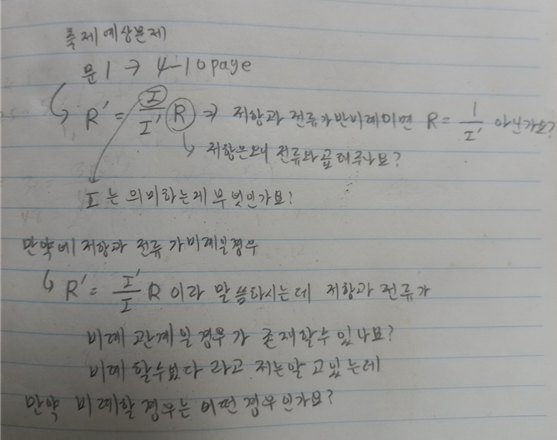 출제예상문제
문1 → 4-10page
R' = I/I' R ⇒ 저항과 전류가 반비례이면 R = 1/I' 아닌가요?
저항은 또 왜 전류와 곱해주나요?
I 는 의미하는게 무엇인가요?
만약에 저항과 전류가 비례일 경우
R' = I'/I R 이라 말씀하시는데 저항과 전류가
비례 관계일 경우가 존재할수 있나요?
비례 할수없다 라고 저는 알고있는데
만약 비례할 경우는 어떤 경우인가요?